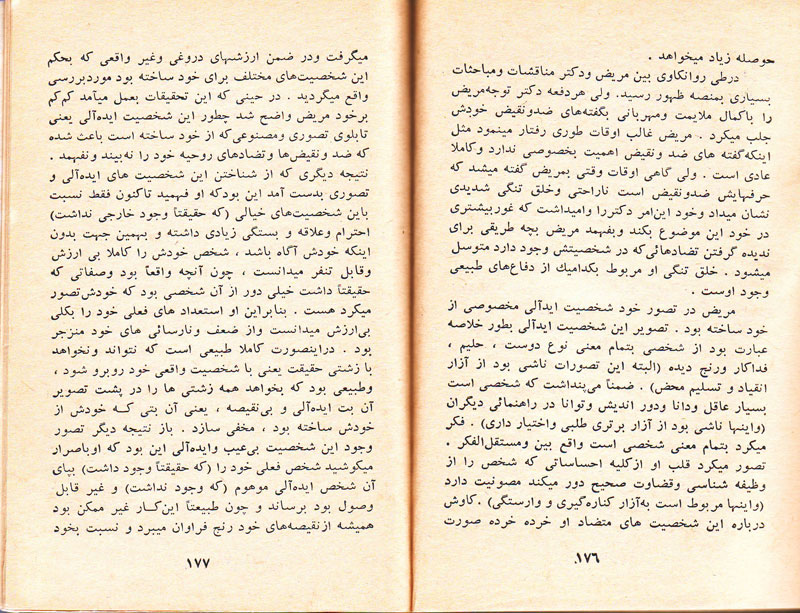 حوصله زیاد میخواهد .
درطی روانکاوی بین مریض ودکتر مناقشات ومباحثات
بسیاری بمنصه ظهور رسید. ولی هردفعه دکتر توجه‌مریض
را باکمال ملایمت ومهربانی بگفته‌های ضدونقیض خودش
جلب میکرد . مریض غالب اوقات طوری رفتار مینمود مثل
اینکه‌گفته های ضد و نقیض اهمیت بخصوصی ندارد وکاملا
عادی است . ولی گاهی اوقات وقتی بمریض گفته میشد که
حرفهایش ضدونقیض است ناراحتی وخلق تنگی شدیدی
نشان میداد وخود این‌امر دکتررا وامیداشت که غوربیشتری
در خود این موضوع بکند وبفهمد مریض بچه طریقی برای
ندیده گرفتن تضادهائی‌که در شخصیتش وجود دارد متوسل
میشود . خلق تنگی او مربوط بکدامیك از دفاع‌های طبیعی
وجود اوست .
مریض در تصور خود شخصیت ایدآلی مخصوصی از
خود ساخته بود . تصویر این شخصیت ایدآلی بطور خلاصه
عبارت بود از شخصی بتمام معنی نوع دوست ، حلیم ،
فداکار ورنج دیده (البته این تصورات ناشی بود از آزار
انقیاد و تسلیم محض) . ضمناً می‌پنداشت که شخصی است
بسیار عاقل ودانا ودور اندیش وتوانا در راهنمائی دیگران
(واینها ناشی بود از آزار برتری طلبی واختیار داری) . فکر
میکرد بتمام معنی شخصی است واقع بین ومستقل‌الفکر .
تصور میکرد قلب او ازکلیه احساساتی که شخص را از
وظیفه شناسی وقضاوت صحیح دور میکند مصونیت دارد
(واینها مربوط است به‌آزار کناره‌گیری و وارستگی) . کاوش
درباره این شخصیت های متضاد او خرده خرده صورت
۱۷۶
میگرفت ودر ضمن ارزشهای دروغی وغیر واقعی که بحکم
این شخصیت‌های مختلف برای خود ساخته بود موردبررسی
واقع میگردید . در حینی که این تحقیقات بعمل میآمد کم‌کم
برخود مریض واضح شد چطور این شخصیت ایده‌آلی یعنی
تابلوی تصوری ومصنوعی‌که از خود ساخته است باعث شده
که ضد ونقیض‌ها وتضادهای روحیه خود را نه‌بیند ونفهمد .
نتیجه دیگری که از شناختن این شخصیت های ایده‌آلی و
تصوری بدست آمد این بودکه او فهمید تاکنون فقط نسبت
باین شخصیت‌های خیالی (که حقیقتاً وجود خارجی نداشت)
احترام وعلاقه و بستگی زیادی داشته و بهمین جهت بدون
اینکه خودش آگاه باشد ، شخص خودش را کاملا بی ارزش
وقابل تنفر میدانست ، چون آنچه واقعاً بود وصفاتی که
حقیقتاً داشت خیلی دور از آن شخصی بود که خودش‌تصور
میکرد هست . بنابراین او استعداد های فعلی خود را بکلی
بی‌ارزش میدانست واز ضعف ونارسائی های خود منزجر
بود . دراینصورت کاملا طبیعی است که نتواند ونخواهد
با زشتی حقیقت یعنی با شخصیت واقعی خود روبرو شود ،
وطبیعی بود که بخواهد همه زشتی ها را در پشت تصویر
آن بت ایده‌آلی و بی‌نقیصه ، یعنی آن بتی کـه خودش از
خودش ساخته بود ، مخفی سازد . باز نتیجه دیگر تصور
وجود این شخصیت بی‌عیب وایده‌آلی این بود که اوباصرار
میکوشید شخص فعلی خود را (که حقیقتاً وجود داشت) بپای
آن شخص ایده‌آلی موهوم (که وجود نداشت) و غیر قابل
وصول بود برساند و چون طبیعتاً این‌کـار غیر ممکن بود
همیشه ازنقیصه‌های خود رنج فراوان میبرد و نسبت بخود
۱۷۷